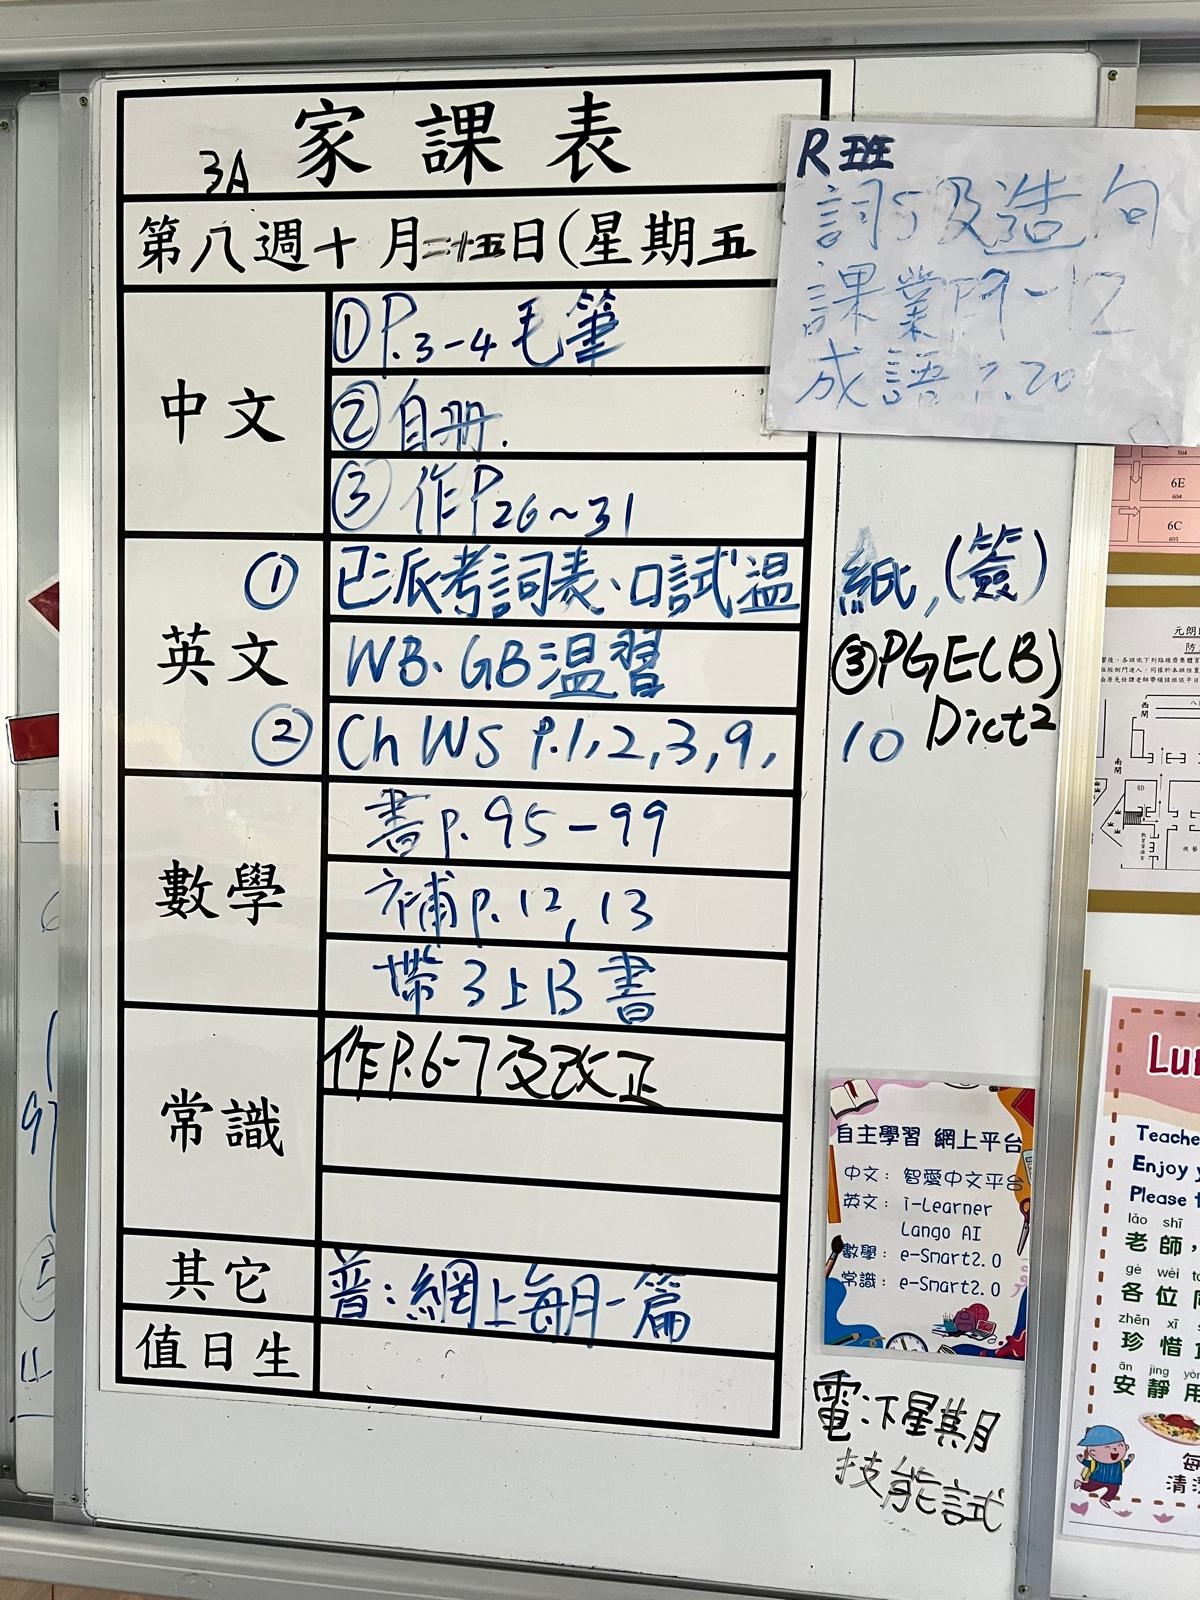 家課表
3A
第八週十月二十五日(星期五
中文
①P.3-4毛筆
②自册.
③作P26~31
英文
①已派考詞表、口試温紙,(簽)
WB、GB温習
②Ch WS P.1,2,3,9,10
③PGE(B)
Dict2
數學
書p.95-99
補p.12,13
帶3上B書
常識
作P.6-7及改正
其它
普:網上每月一篇
值日生
R班
詞5及造句
課業P9-12
成語P.20
自主學習 網上平台
中文: 智愛中文平台
英文: i-Learner
Lango AI
數學: e-Smart2.0
常識: e-Smart2.0
電:下星期
技能試
504
6E
604
6C
603
西閘
南閘
6D
Teache
Enjoy y
Please
lǎo shī
老師,
gè wèi
各位
zhēn xī
珍惜
ān jìng
安靜用